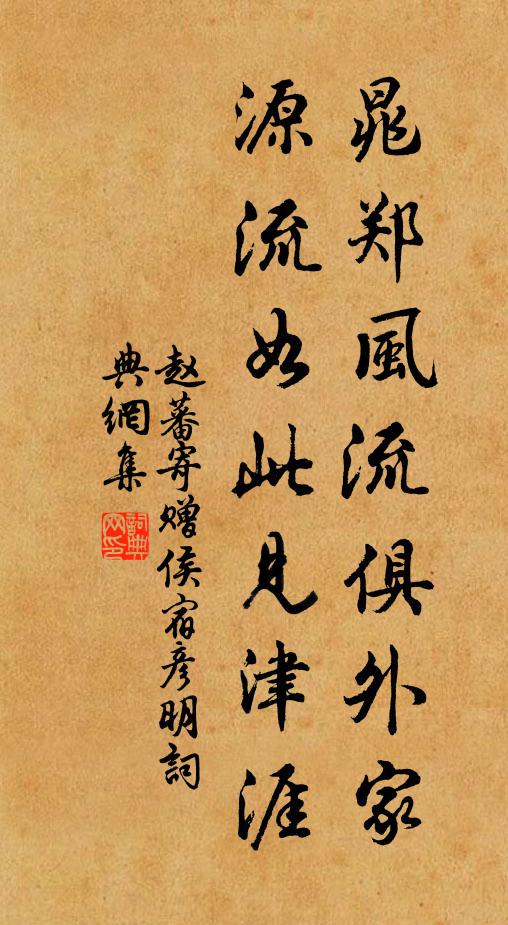 晁郑風流俱外家
源流如此見津涯
赵蕃寄赠侯宿彦明詞
典網集
詞典
网印